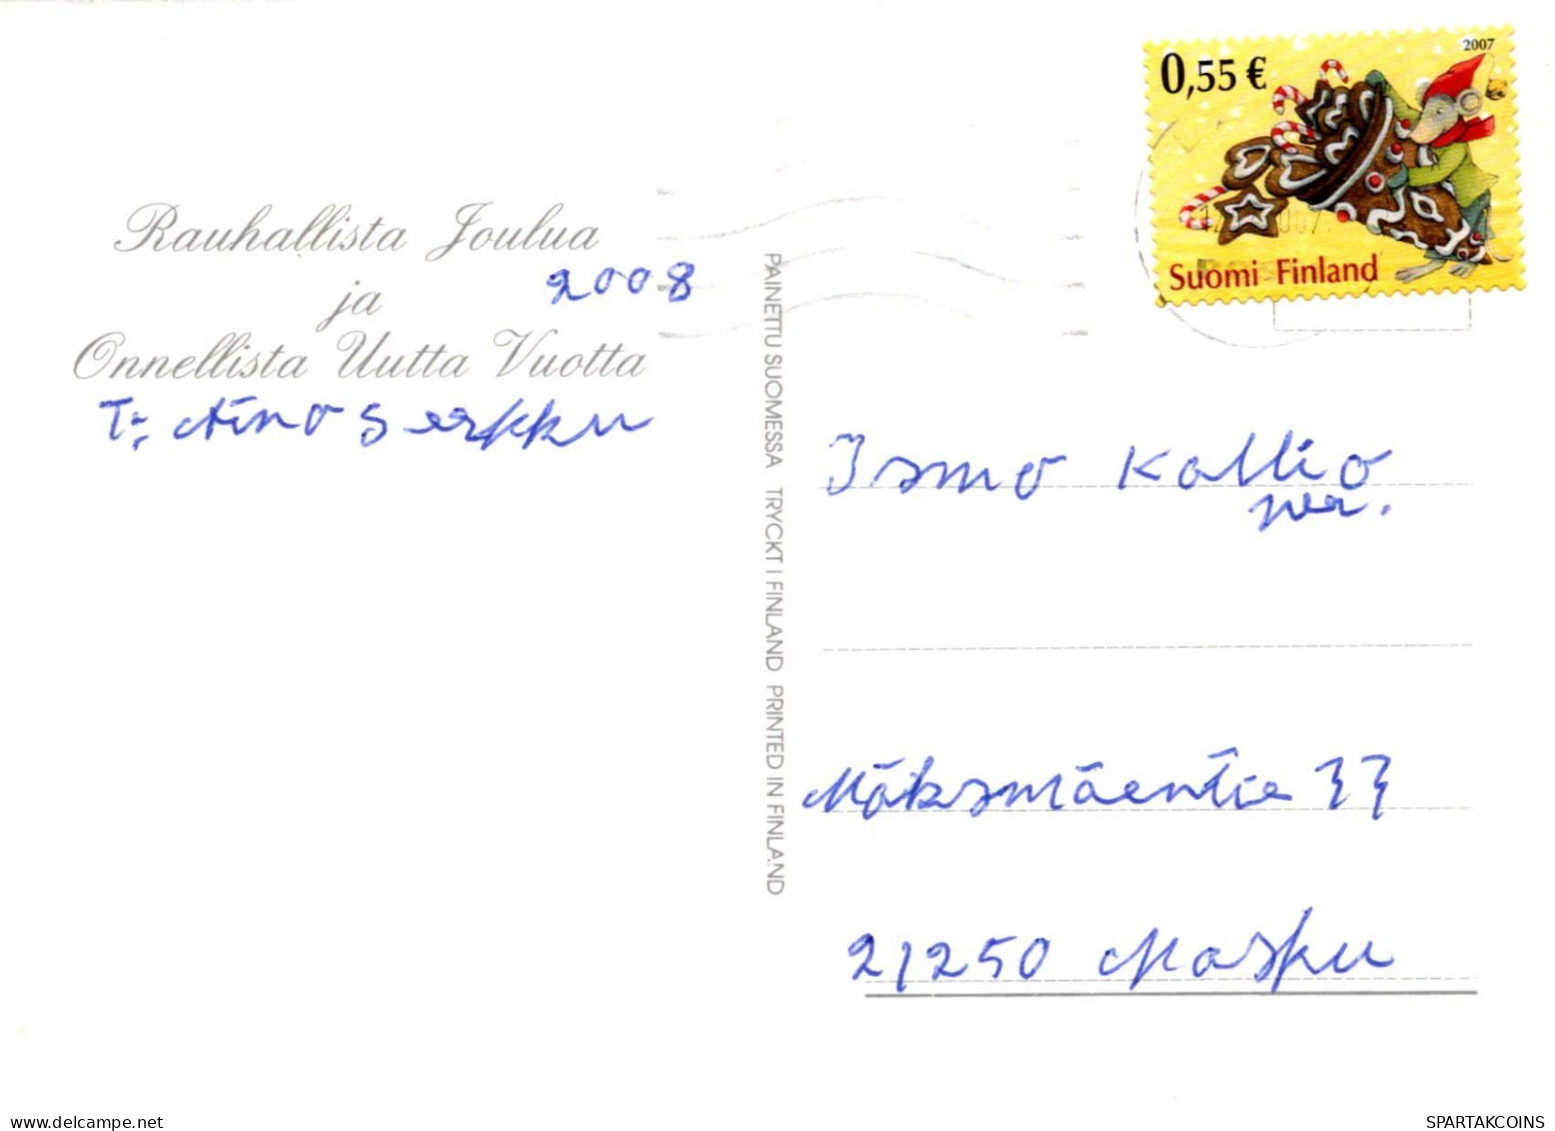 0,55 €
2007
Suomi Finland
Rauhallista Joulua
ja
2008
Onnellista Uutta Vuotta
T: Aino Serkku
PAINETTU SUOMESSA TRYCKT I FINLAND PRINTED IN FINLAND
Ismo Kallio
per.
21250 Masku
delcampe.net
SPARTAKCOINS